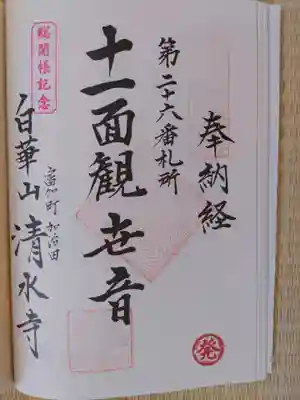 奉納経
第二十六番札所
十一面観世音
総開帳記念
富加町 加治田
白華山 清水寺
発